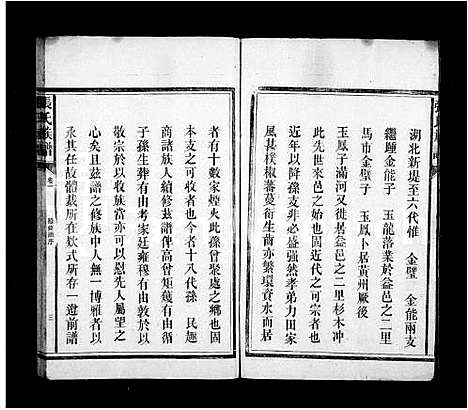 湖北新堤至六代惟　金璧　金能兩支
繼踵金能子　玉龍落業於益邑之二里
馬市金璧子　玉鳳卜居黃州廠後
玉鳳子滿河又徙居益邑二里杉木冲
先世始來邑之始也固近代之可宗者也
近年以降孫支非必盛强然孝弟力田家
風甚樸椒蕃蔓衍生齒亦繁環資水而居
者有十數家煙火此孫曾聚處之鄉也固
本支之可收者也今十八代孫　民趣
商諸族人續修兹譜俾高曾矩鑊有由敦
子孫生葬有由考家廷雍穆有由敦於以
敬宗於以收族當亦可以慰先人屬望之
心矣且兹譜之修族中人無一博雅者以
承其任故體裁所在欵式所存一遵前譜
張氏族譜
卷一
三